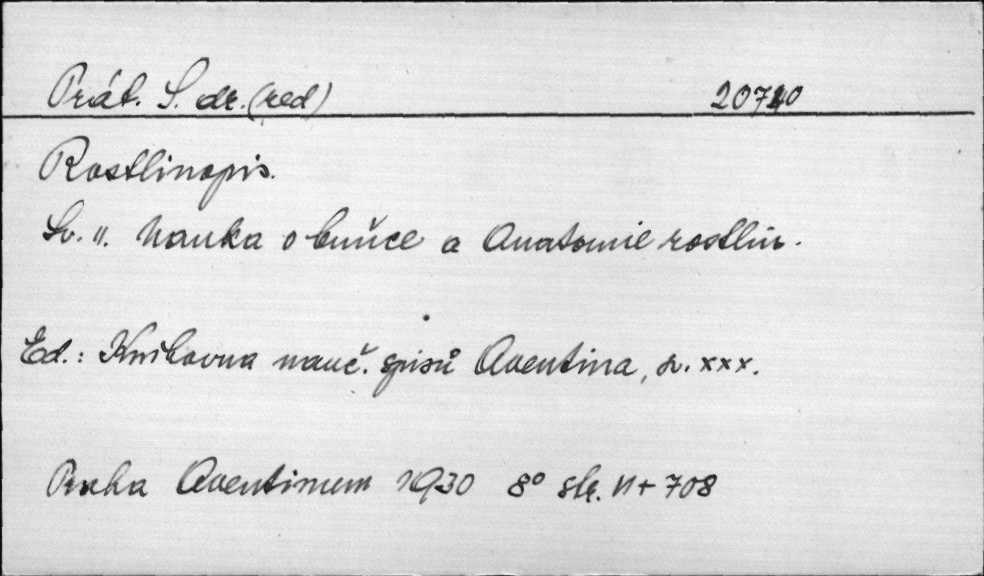 Prát. S. dr. (red) 20740
Rostlinopis.
Sv. II. Nauka o buňce a Anatomie rostlin.
Ed.: Knihovna nauč. spisů Aventina, sv. XXX.
Praha Aventinum 1930 8° str. 11 + 708